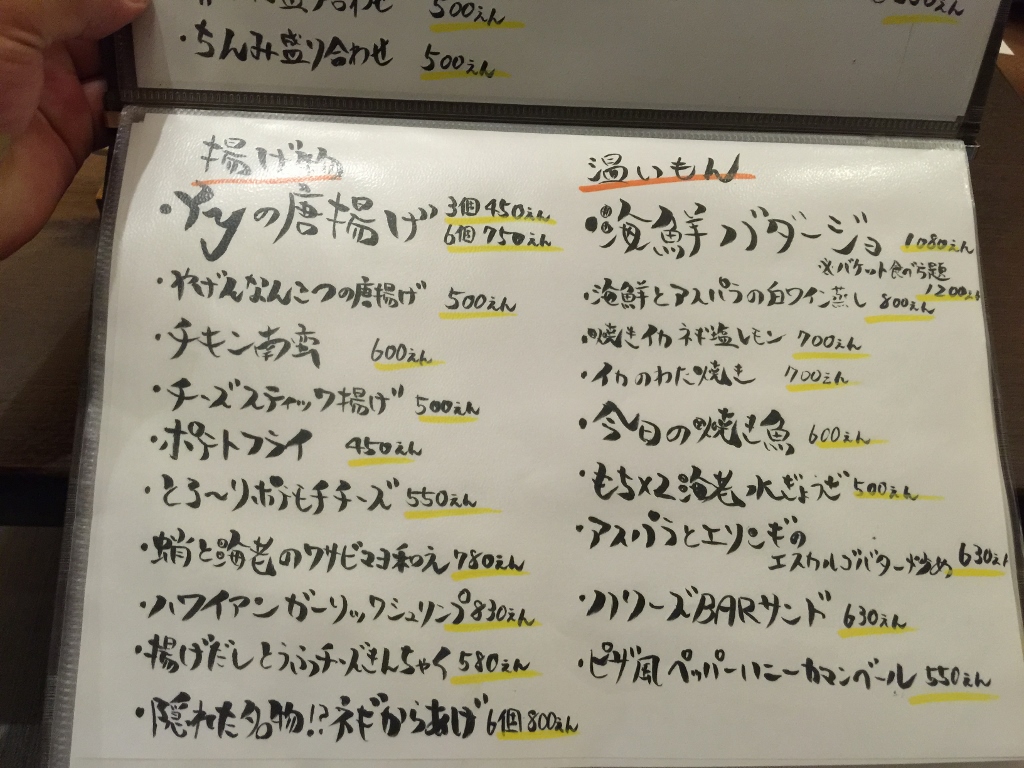 盛り合わせ 500えん
・ちんみ盛り合わせ 500えん
揚げ物
・Yyの唐揚げ 3個450えん
6個750えん
・やげんなんこつの唐揚げ 500えん
・チキン南蛮 600えん
・チーズスティック揚げ 500えん
・ポテトフライ 450えん
・とろ〜りポテモチチーズ 550えん
・蛸と海老のワサビマヨ和え 780えん
・ハワイアンガーリックシュリンプ 830えん
・揚げだしとうふうチーズきんちゃく 580えん
・隠れた名物!?ネギからあげ 6個800えん
温いもん
・海鮮バダージョ 1080えん
※バケット食べ放題 1200えん
・海鮮とアスパラの白ワイン蒸し 800えん
・焼きイカネギ塩レモン 700えん
・イカのわた焼き 700えん
・今日の焼き魚 600えん
・もち×2海老水ぎょうざ 500えん
・アスパラとエリンギの
エスカルゴバター炒め 630えん
・ハリーズBARサンド 630えん
・ピザ風ペッパーハニーカマンベール 550えん